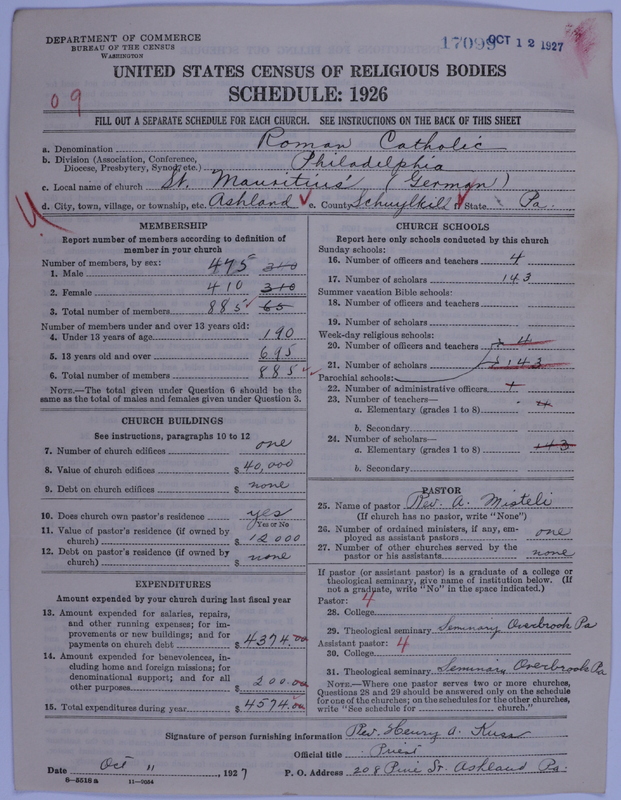 DEPARTMENT OF COMMERCE
BUREAU OF THE CENSUS
WASHINGTON
17099 OCT 12 1927
UNITED STATES CENSUS OF RELIGIOUS BODIES
SCHEDULE: 1926
0 9
FILL OUT A SEPARATE SCHEDULE FOR EACH CHURCH. SEE INSTRUCTIONS ON THE BACK OF THIS SHEET
a. Denomination Roman Catholic
b. Division (Association, Conference, Diocese, Presbytery, Synod, etc.) Philadelphia
c. Local name of church St. Mauritius (German)
d. City, town, village, or township, etc. Ashland e. County Schuylkill f. State Pa.
MEMBERSHIP
Report number of members according to definition of
member in your church
Number of members, by sex:
1. Male 475 310
2. Female 410 310
3. Total number of members 885 65
Number of members under and over 13 years old:
4. Under 13 years of age 190
5. 13 years old and over 695
6. Total number of members 885
NOTE.—The total given under Question 6 should be
same as the total of males and females given under Question 3.
CHURCH BUILDINGS
See instructions, paragraphs 10 to 12
7. Number of church edifices one
8. Value of church edifices $ 40,000
9. Debt on church edifices $ none
10. Does church own pastor's residence yes
Yes or No
11. Value of pastor's residence (if owned by
church) $ 12000
12. Debt on pastor's residence (if owned by
church) $ none
EXPENDITURES
Amount expended by your church during last fiscal year
13. Amount expended for salaries, repairs,
and other running expenses; for im-
provements or new buildings; and for
payments on church debt $ 4374.00
14. Amount expended for benevolences, in-
cluding home and foreign missions; for
denominational support; and for all
other purposes $ 200.00
15. Total expenditures during year $ 4574.00
CHURCH SCHOOLS
Report here only schools conducted by this church
Sunday schools:
16. Number of officers and teachers 4
17. Number of scholars 143
Summer vacation Bible schools:
18. Number of officers and teachers
19. Number of scholars
Week-day religious schools:
20. Number of officers and teachers 4
21. Number of scholars 143
Parochial schools:
22. Number of administrative officers
23. Number of teachers—
a. Elementary (grades 1 to 8) 4
b. Secondary
24. Number of scholars—
a. Elementary (grades 1 to 8) 143
b. Secondary
PASTOR
25. Name of pastor Rev. A. Misteli
(If church has no pastor, write "None")
26. Number of ordained ministers, if any, em-
ployed as assistant pastors one
27. Number of other churches served by the
pastor or his assistants none
If pastor (or assistant pastor) is a graduate of a college or
theological seminary, give name of institution below. (If
not a graduate, write "No" in the space indicated.)
Pastor: 4
28. College
29. Theological seminary Seminary Overbrook Pa
Assistant pastor: 4
30. College
31. Theological seminary Seminary Overbrook Pa
NOTE.—Where one pastor serves two or more churches,
Questions 28 and 29 should be answered only on the schedule
for one of the churches; on the schedules for the other churches,
write "See schedule for ______ church."
Signature of person furnishing information Rev. Henry A. Kuss
Official title Priest
Date Oct 11, 1927 P. O. Address 208 Pine St. Ashland Pa.
8—5518 a 11—9054